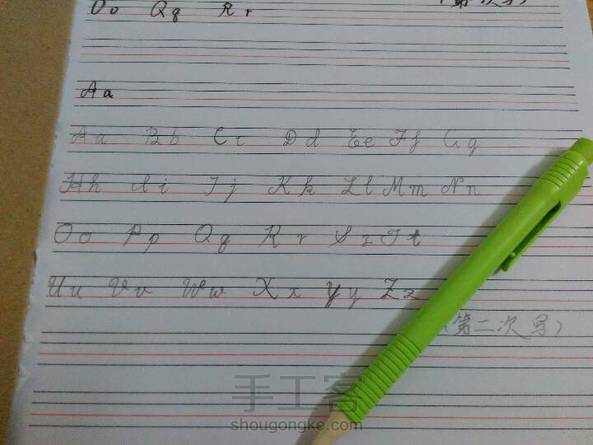 Oo Qq Rr
Aa
Aa Bb Cc Dd Ee Ff Gg
Hh Ii Jj Kk Ll Mm Nn
Oo Pp Qq Rr Ss Tt
Uu Vv Ww Xx Yy Zz
(第二次写)
手工客
shougongke.com